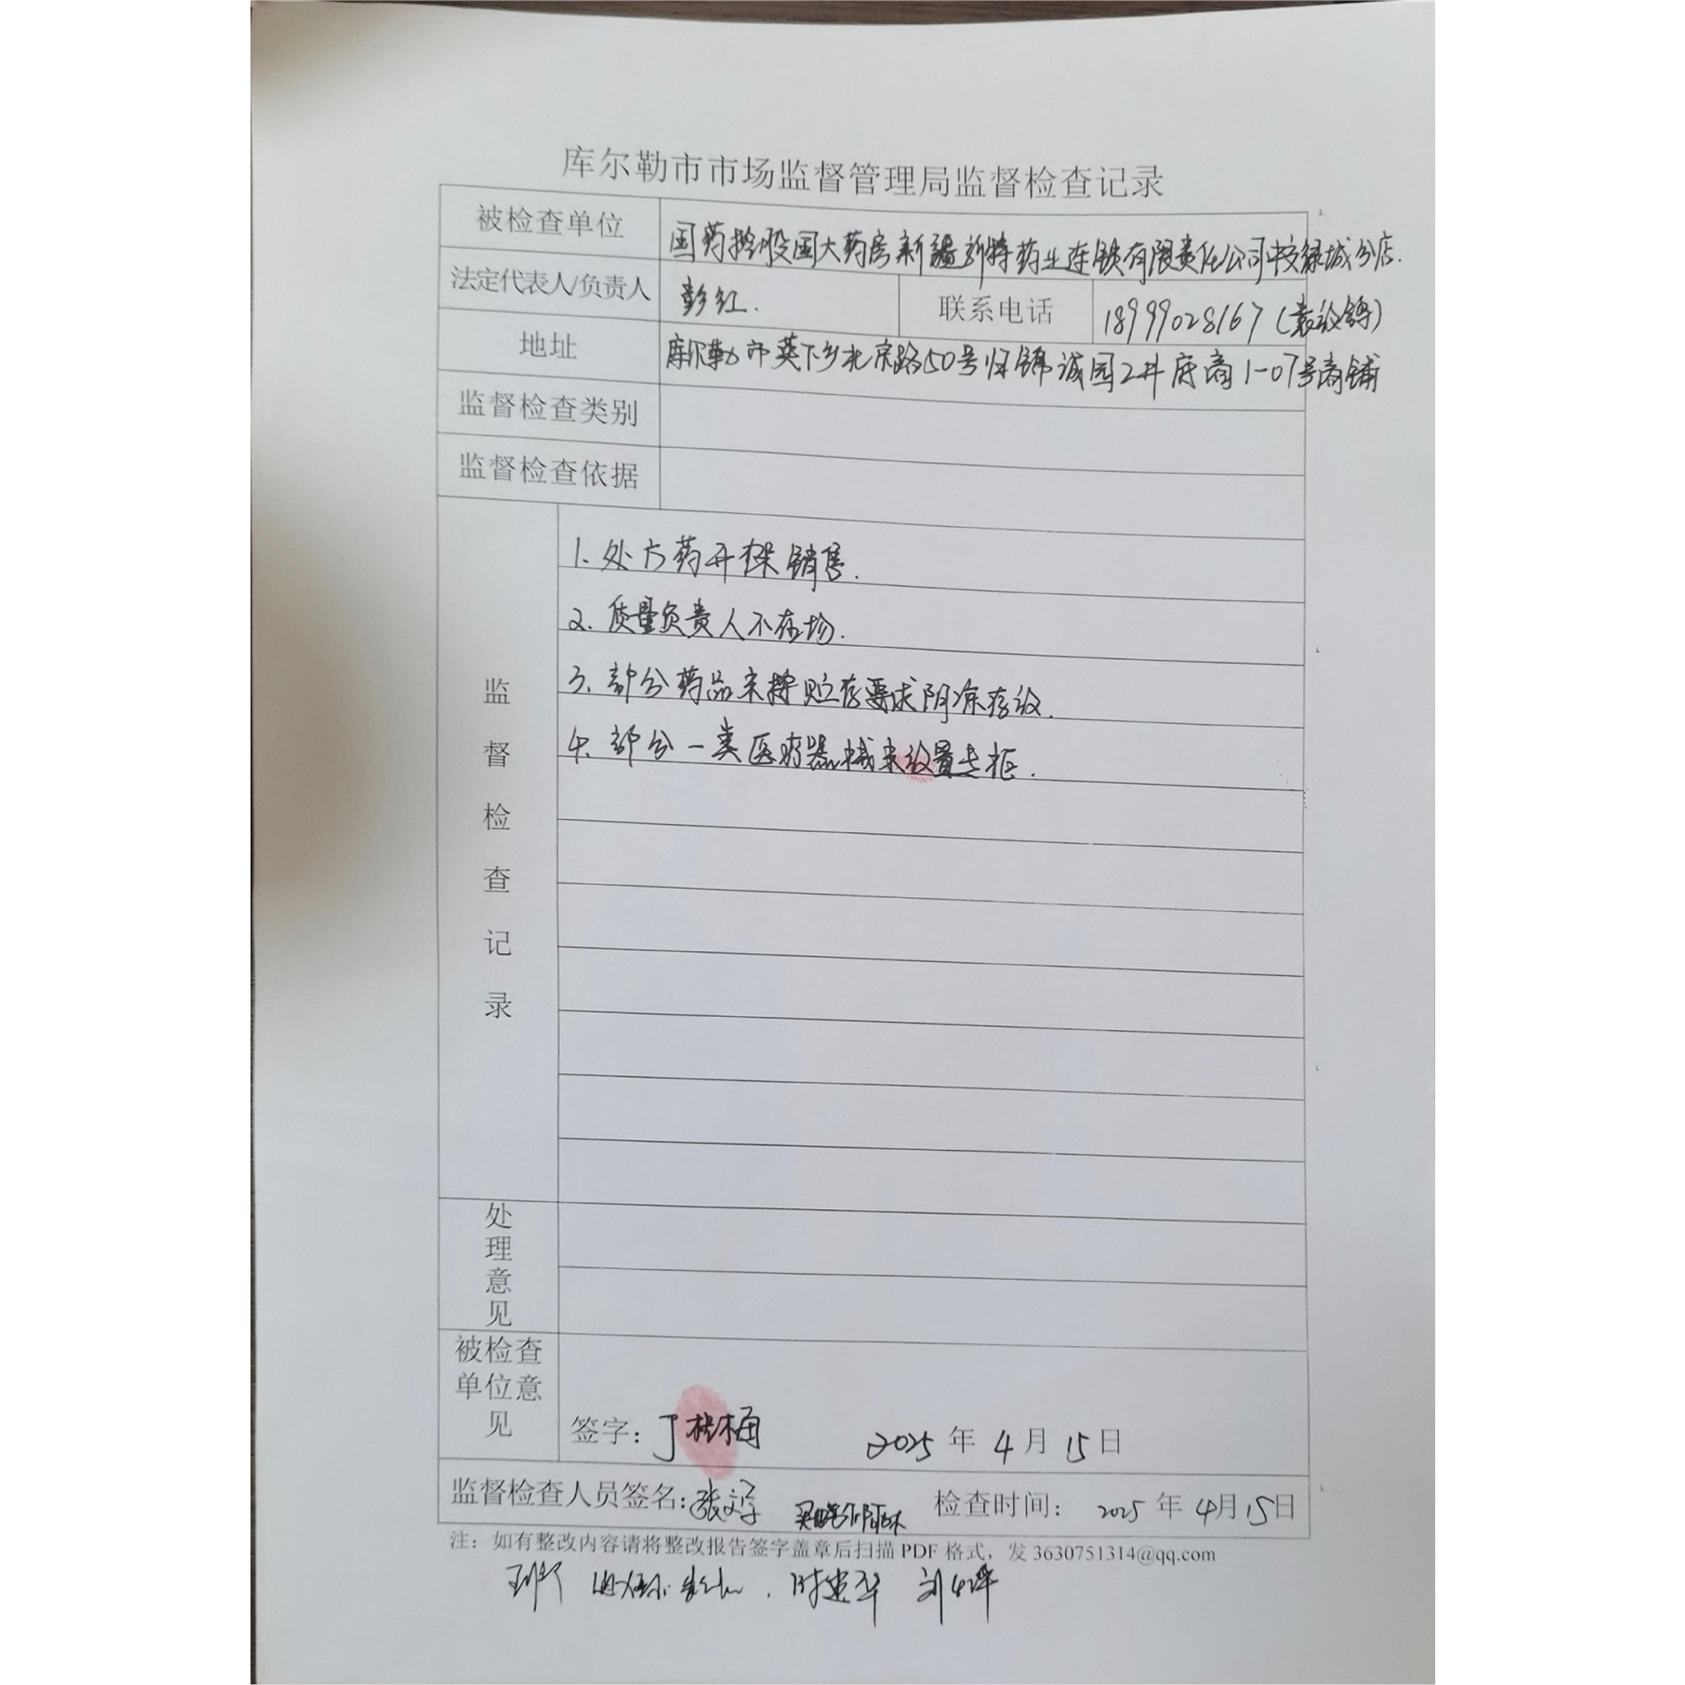 库尔勒市市场监督管理局监督检查记录
被检查单位 国药控股国大药房新疆新特药业连锁有限责任公司中交绿城分店.
法定代表人/负责人 彭红. 联系电话 18999028167(袁
地址 库尔勒市英下乡北京路50号归锦诚园2#底商1-07号商铺
监督检查类别
监督检查依据
监督检查记录
1. 处方药开架销售.
2. 质量负责人不在场.
3. 部分药品未按贮存要求阴凉存放.
4. 部分一类医疗器械未放置专柜.
处理意见
被检查单位意见
签字: 丁 梅 2025年4月15日
监督检查人员签名: 张文 检查时间: 2025年4月15日
注:如有整改内容请将整改报告签字盖章后扫描PDF格式,发3630751314@qq.com